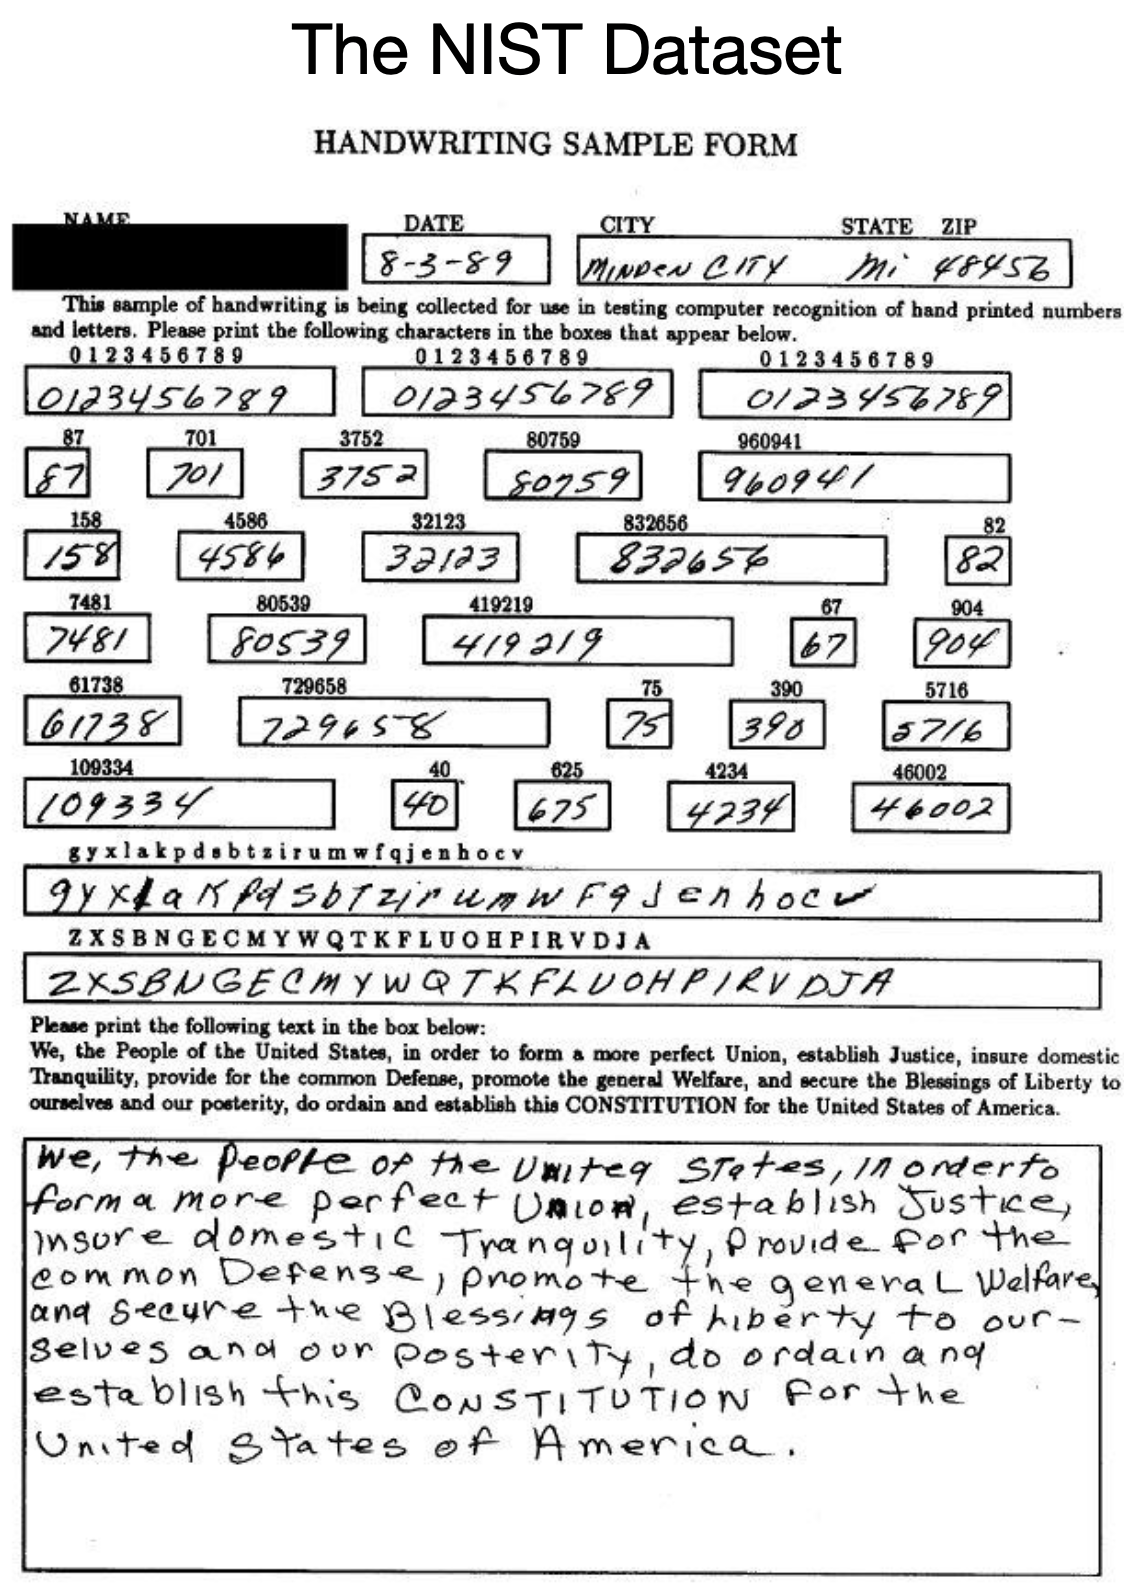 The NIST Dataset
HANDWRITING SAMPLE FORM
NAME DATE CITY STATE ZIP
8-3-89 MINDEN CITY Mi 48456
This sample of handwriting is being collected for use in testing computer recognition of hand printed numbers
and letters. Please print the following characters in the boxes that appear below.
0 1 2 3 4 5 6 7 8 9 0 1 2 3 4 5 6 7 8 9 0 1 2 3 4 5 6 7 8 9
0123456789 0123456789 0123456789
87 701 3752 80759 960941
87 701 3752 80759 960941
158 4586 32123 832656 82
158 4586 32123 832656 82
7481 80539 419219 67 904
7481 80539 419219 67 904
61738 729658 75 390 5716
61738 729658 75 390 5716
109334 40 625 4234 46002
109334 40 675 4234 46002
g y x l a k p d s b t z i r u m w f q j e n h o c v
g y x l a K p d s b T z i r u m w F q J e n h o c v
Z X S B N G E C M Y W Q T K F L U O H P I R V D J A
Z X S B N G E C M Y W Q T K F L U O H P I R V D J A
Please print the following text in the box below:
We, the People of the United States, in order to form a more perfect Union, establish Justice, insure domestic
Tranquility, provide for the common Defense, promote the general Welfare, and secure the Blessings of Liberty to
ourselves and our posterity, do ordain and establish this CONSTITUTION for the United States of America.
We, the People of the United States, in order to
form a more perfect Union, establish Justice,
insure domestic Tranquility, Provide for the
common Defense, promote the general Welfare,
and secure the Blessings of Liberty to our-
selves and our posterity, do ordain and
establish this CONSTITUTION for the
United States of America.